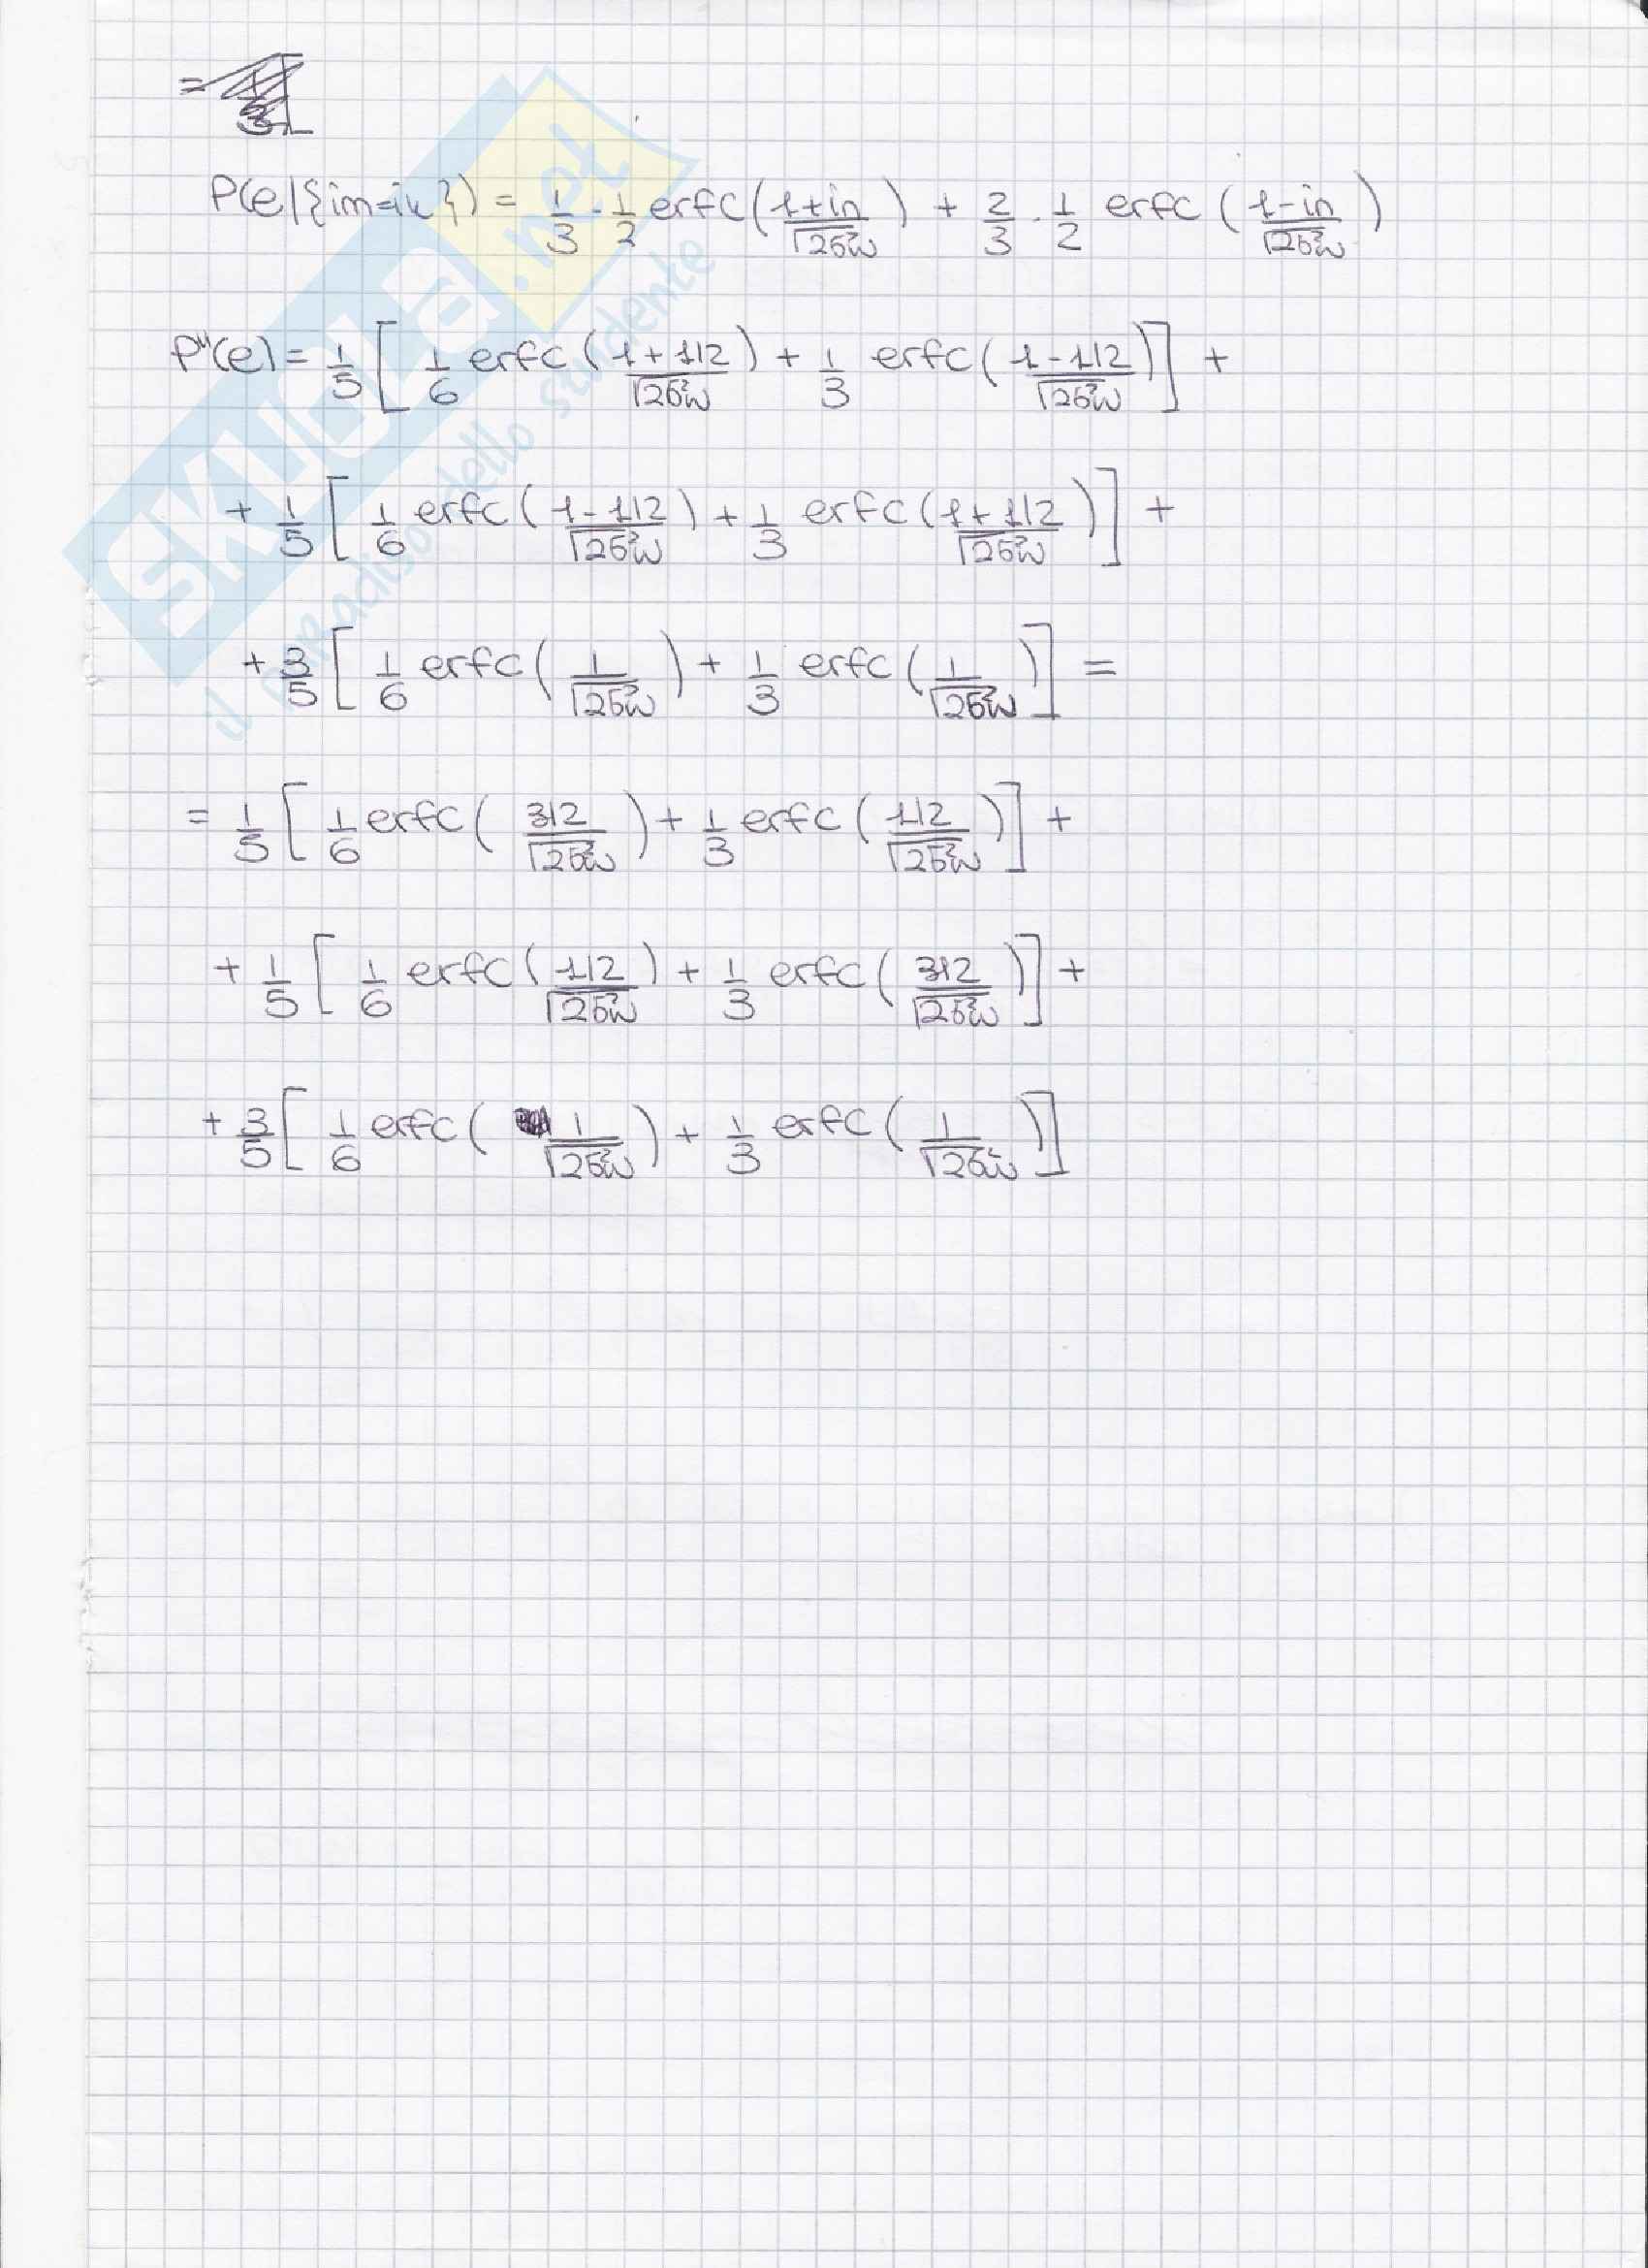 =
P(e|{in=ik}) = 1/3 · 1/2 erfc(1+in/√2σ²w) + 2/3 · 1/2 erfc(1-in/√2σ²w)
P"(e) = 1/5 [1/6 erfc(1+1/2/√2σ²w) + 1/3 erfc(1-1/2/√2σ²w)] +
+ 1/5 [1/6 erfc(1-1/2/√2σ²w) + 1/3 erfc(1+1/2/√2σ²w)] +
+ 3/5 [1/6 erfc(1/√2σ²w) + 1/3 erfc(1/√2σ²w)] =
= 1/5 [1/6 erfc(3/2/√2σ²w) + 1/3 erfc(1/2/√2σ²w)] +
+ 1/5 [1/6 erfc(1/2/√2σ²w) + 1/3 erfc(3/2/√2σ²w)] +
+ 3/5 [1/6 erfc(1/√2σ²w) + 1/3 erfc(1/√2σ²w)]
SKUOLA.net
il paradiso dello studente